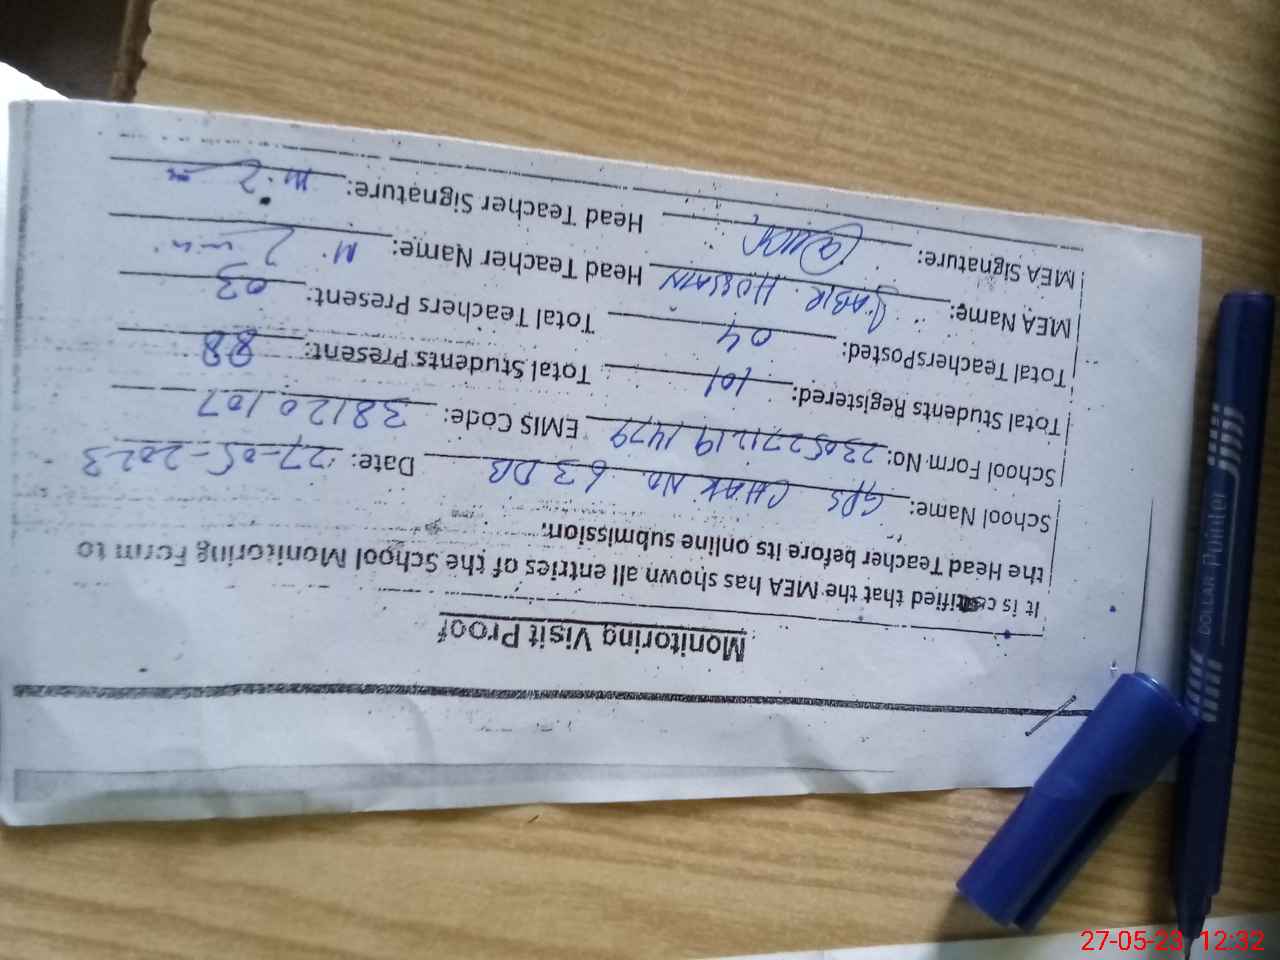 Monitoring Visit Proof
It is certified that the MEA has shown all entries of the School Monitoring Form to
the Head Teacher before its online submission.
School Name: GPS CHAK NO. 63 DB Date: 27-05-2023
School Form No: 23052711191479 EMIS Code: 38120107
Total Students Registered: 101 Total Students Present: 88
Total TeachersPosted: 04 Total Teachers Present: 03
MEA Name: SABIR HUSSAIN Head Teacher Name: M.
MEA Signature: Head Teacher Signature: M.
DOLLAR Pointer
27-05-23 12:32